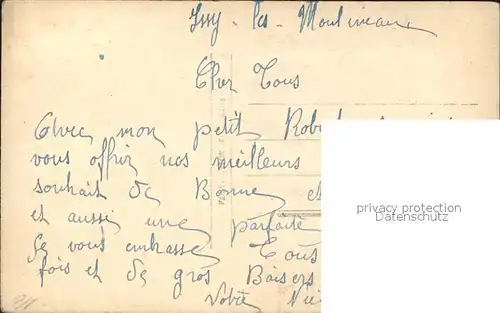 Issy-les-Moulineaux
Cher Tous
Avec mon petit
vous offrir nos meilleurs
souhait de Bonne et
et aussi une parfaite
Je vous embrasse Tous
fois et de gros Baisers
Votre
privacy protection
Datenschutz